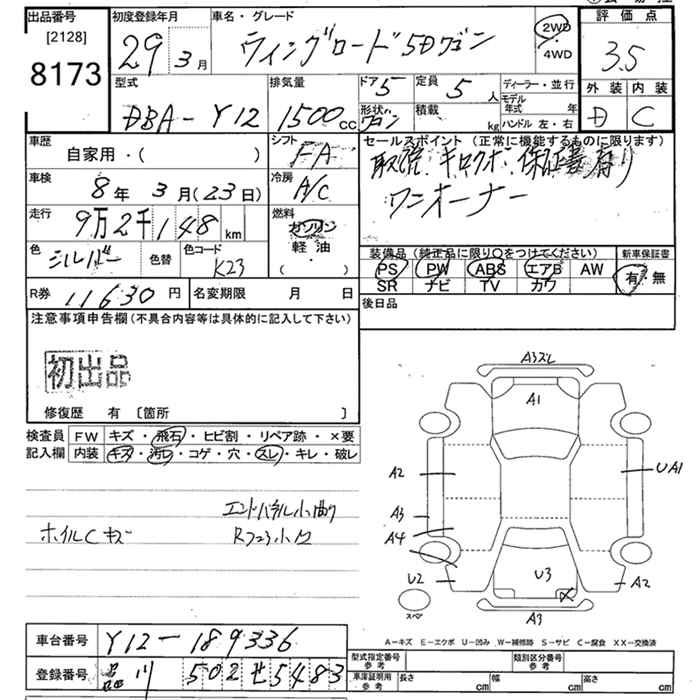 出品番号 初度登録年月 車名・グレード 評価点
[2128]
8173
29年3月 ウィングロード 5Dワゴン 2WD・4WD 3.5
外装 内装
D C
型式 排気量 ドア 定員 ディーラー・並行
DBA-Y12 1500cc 5 5人 モデル年式 年
形状 ワゴン 積載 kg ハンドル 左・右
車歴 シフト セールスポイント (正常に機能するものに限ります)
自家用・( ) FA 取説、キロクボ、保証書有り
ワンオーナー
車検 冷房
8年3月(23日) A/C
走行 燃料
9万2千148km ガソリン
軽油・
( )
色 シルバー 色替 色コード K23
装備品 (純正品に限り○をつけてください) 新車保証書
PS PW ABS エアB AW 有・無
SR ナビ TV カワ
R券 11630円 名変期限 月 日
後日品
注意事項申告欄(不具合内容等は具体的に記入して下さい)
初出品
修復歴 有 〔箇所 〕
検査員 FW キズ・飛石・ヒビ割・リペア跡・×要
記入欄 内装 キズ・汚レ・コゲ・穴・スレ・キレ・破レ
エンドパネル小曲り
ホイルCキズ
A3スレ
A1
A2 UA1
A3
A4
U2 U3 A2
スペア
A3
A-キズ E-エクボ U-凹み W-補修跡 S-サビ C-腐食 XX-交換済
車台番号 Y12-189336
登録番号 品川 502せ5483
型式指定番号 参考 類別区分番号 参考
車庫証明用 参考 長さ cm 幅 cm 高さ cm